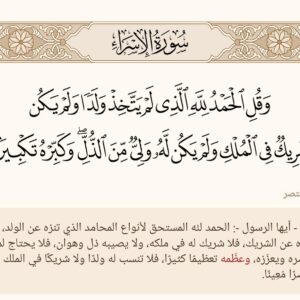 سُورَةُ الإِسْرَاءِ
وَقُلِ الْحَمْدُ لِلَّهِ الَّذِى لَمْ يَتَّخِذْ وَلَدًا وَلَمْ يَكُن
شَرِيكٌ فِى الْمُلْكِ وَلَمْ يَكُن لَّهُۥ وَلِىٌّ مِّنَ الذُّلِّ ۖ وَكَبِّرْهُ تَكْبِيرًا
- أيها الرسول -: الحمد لله المستحق لأنواع المحامد الذي تنزه عن الولد،
ه عن الشريك، فلا شريك له في ملكه، ولا يصيبه ذل وهوان، فلا يحتاج لم
ره ويعزّزه، وعظّمه تعظيمًا كثيرًا، فلا تنسب له ولدًا ولا شريكًا في الملك
رًا مُعِينًا.